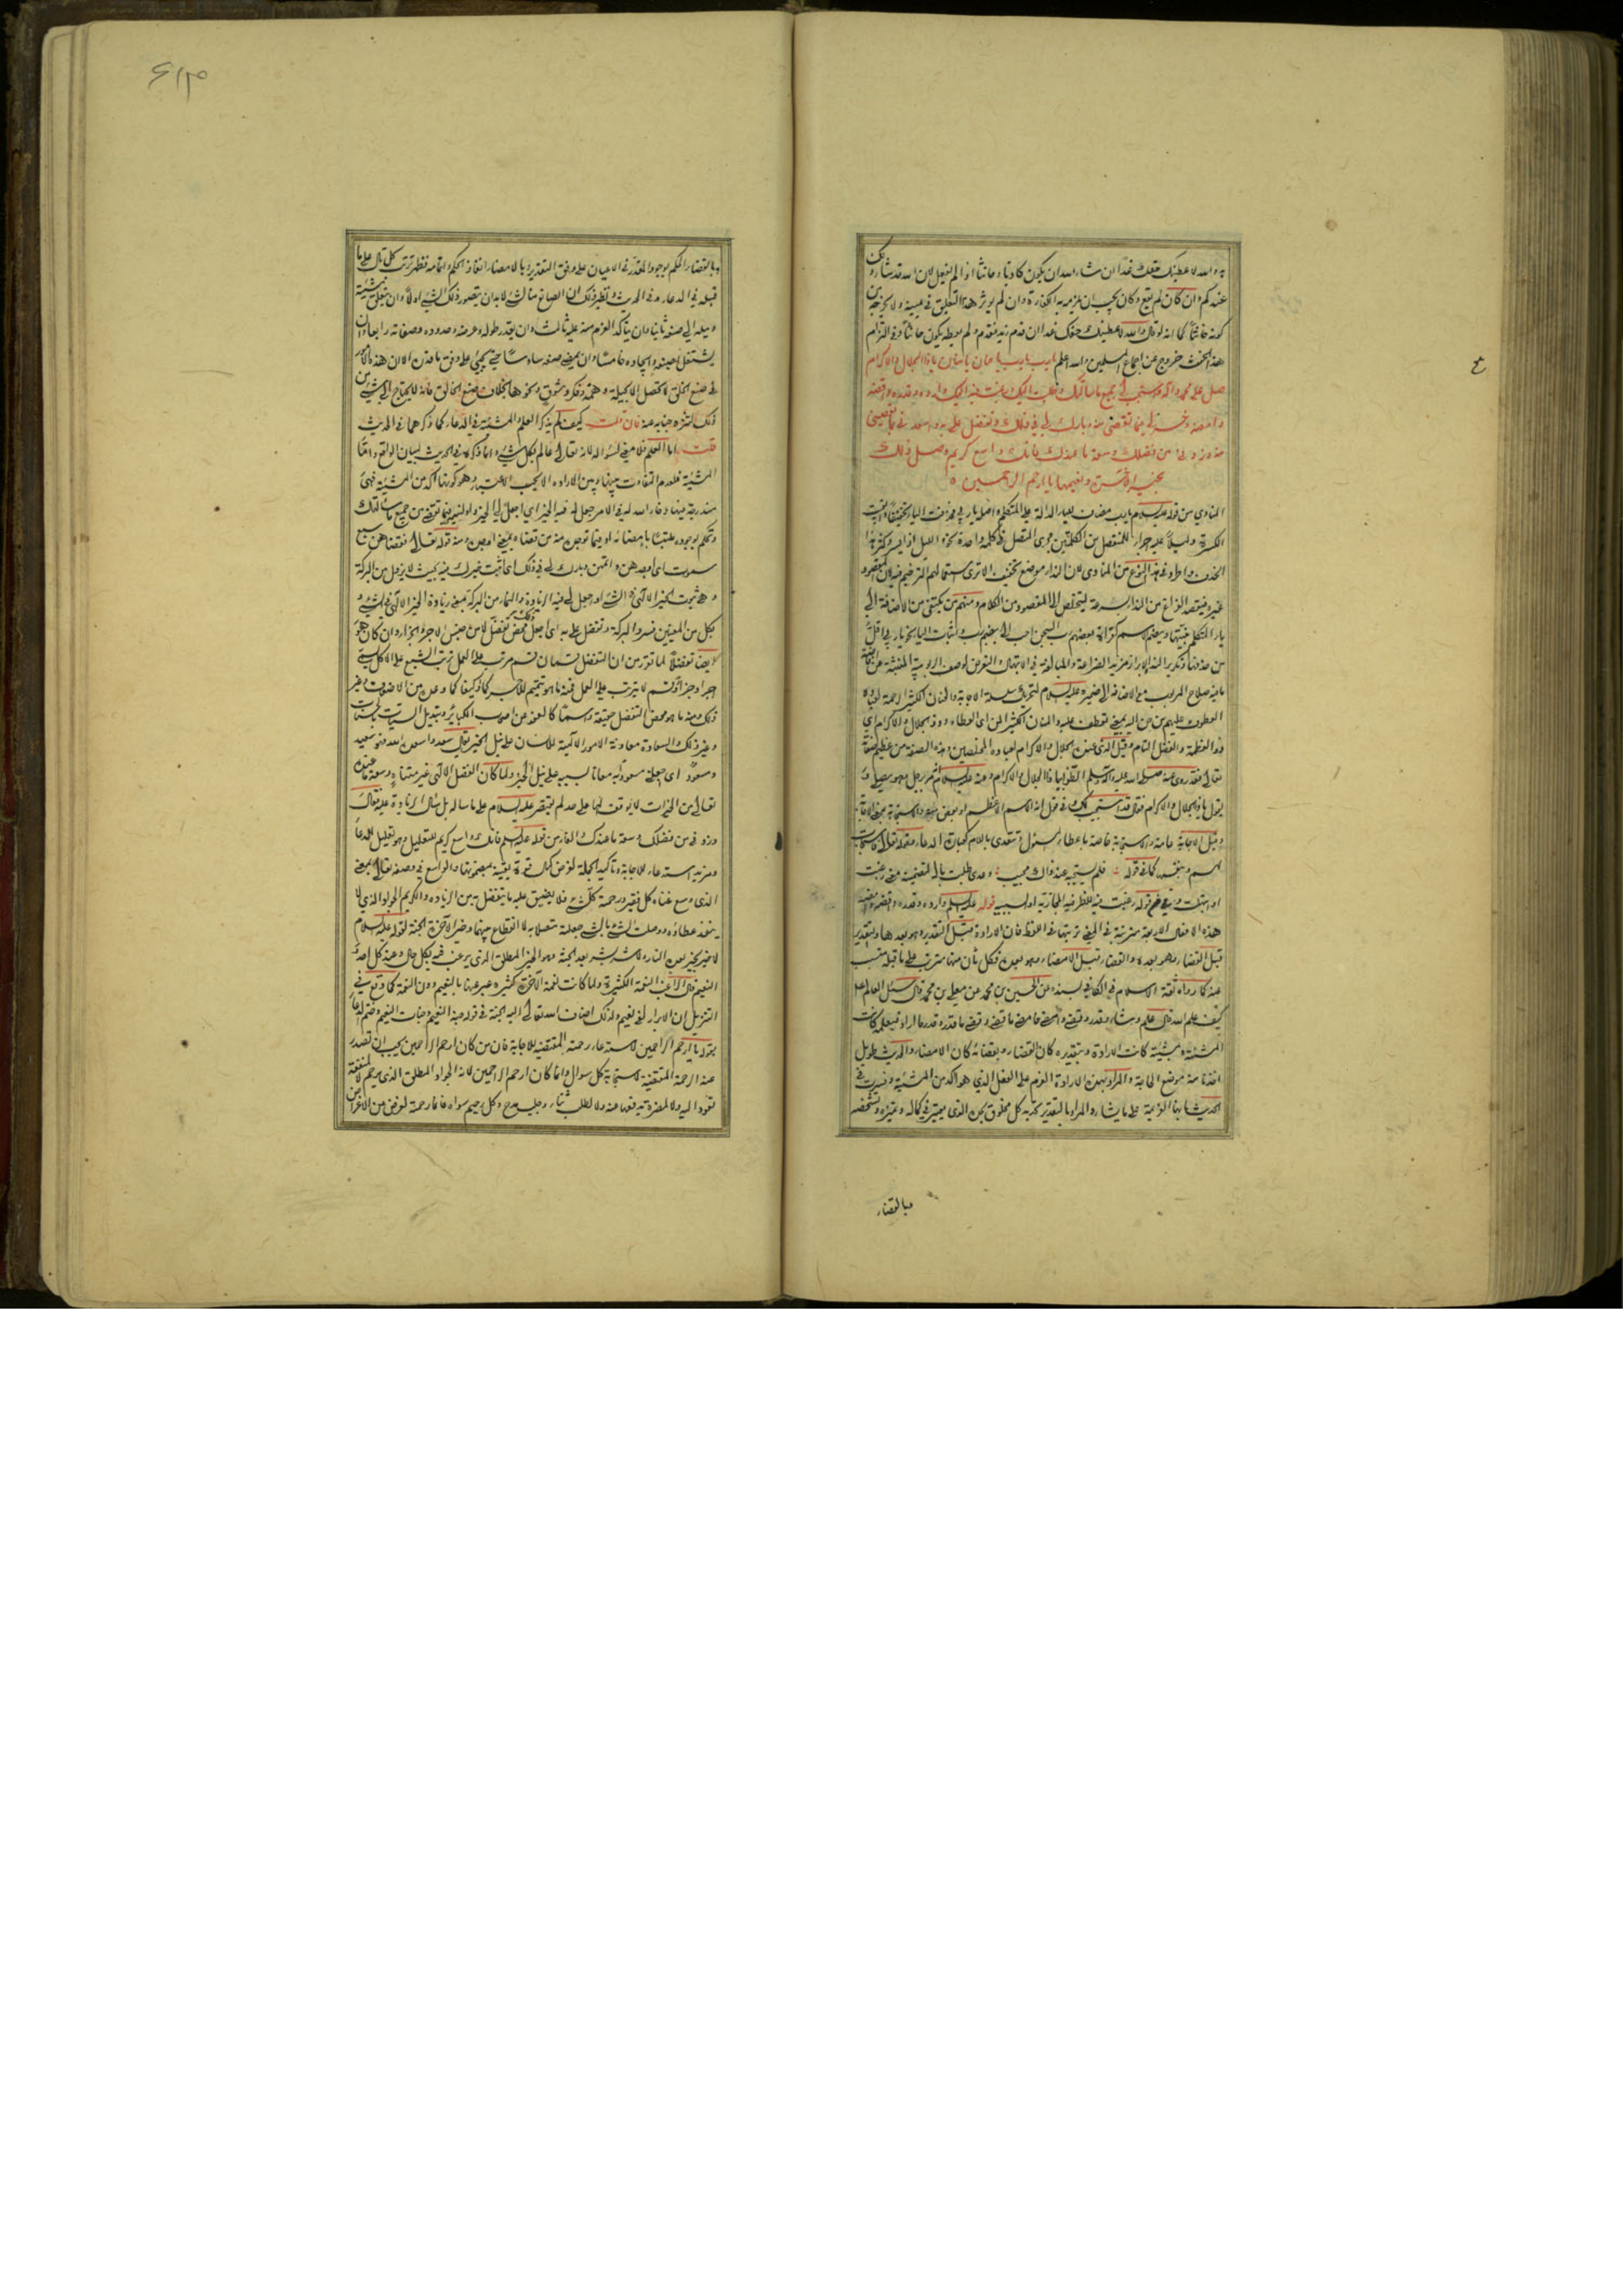 به والله لاعطينك حقك غدا ان شاء الله ان يكون كاذبا وحانثا اذا لم يفعل لان الله قد شاء ذلك
عندكم وان كان لم يقع وكان يجب ان يلزمه به الكفارة وان لم يؤثر هذا التعليق في يمينه ولا يخرجه من
كونه حانثا كما انه لو قال والله لاعطينك حقك غدا ان قدم زيد فقدم ولم يعطه يكون حانثا وفي التزام
هذا الحنث خروج عن اجماع المسلمين والله اعلم يارب يارب يا حنان يا منان يا ذا الجلال والاكرام
صل على محمد وآله واستجب لي جميع ما سألتك وطلبت اليك ورغبت فيه اليك وارده وقدره واقضه
وامضه وخر لي فيما تقضي منه وبارك لي في ذلك وتفضل علي به واسعدني بما تعطيني
منه وزدني من فضلك وسعة ما عندك فانك واسع كريم وصل ذلك
بخير الآخرة ونعيمها يا ارحم الراحمين
المنادي من قوله عليه السلام يارب مضاف للياء الدالة على المتكلم واصله يا ربي فحذفت الياء تخفيفا وابقيت
الكسرة دليلا عليه اجراء للمنفصل من الكلمتين مجرى المتصل في كلمة واحدة نحو والليل اذا يسر وكثر هذا
الحذف واطرد في هذا النوع من المنادى لان النداء موضع تخفيف الا ترى استعمالهم الترخيم فيه لان المقصود
غيره فيقصد الفراغ من النداء بسرعة ليتخلص الى المقصود من الكلام ومنهم من يكتفي من الاضافة الى
ياء المتكلم بنيتها ويضم الاسم كقراءة بعضهم رب السجن احب الي بضم رب واثبات الياء نحو يا ربي اقل
من حذفها وتكرير النداء لابراز مزيد الضراعة والمبالغة في الابتهال والتعرض لوصف الربوبية المنبئة عن افاضة
ما فيه صلاح المربوب مع الاضافة الى ضميره عليه السلام لتحريك سلسلة الاجابة والحنان الكثير الرحمة لعباده
العطوف عليهم من حن اليه بمعنى تعطف عليه والمنان الكثير المن اي العطاء وذو الجلال والاكرام اي
ذو العظمة والفضل التام وقيل الذي عنده الجلال والاكرام لعباده المخلصين وهذه الصفة من عظيم صفاته
تعالى فقد روى عنه صلى الله عليه وآله وسلم الظوا بيا ذا الجلال والاكرام وعنه عليه السلام انه مر برجل وهو يصلي و
يقول يا ذا الجلال والاكرام فقال قد استجيب لك وفي قول انه الاسم الاعظم
وقيل الاجابة عامة والاستجابة خاصة باعطاء المسئول وتتعدى باللام
لهم ربهم وبنفسه كما في قوله فلم يستجبه عند ذاك مجيب وعدى طلبت بالى لتضمينه معنى رغبت
او ابتهلت وفي قوله ورغبت فيه للظرفية المجازية او السببية قوله عليه السلام وارده وقدره واقضه وامضه
هذه الافعال الاربعة مترتبة في المعنى ترتيبها في اللفظ فان الارادة قبل التقدير وهو بعدها والتقدير
قبل القضاء وهو بعده والقضاء قبل الامضاء وهو بعده فكل ثان منها مترتب على ما قبله مسبب
عنه كما رواه ثقة الاسلام في الكافي بسنده عن الحسين بن محمد عن معلى بن محمد قال سئل العالم ع
كيف علم الله قال علم وشاء وقدر وقضى وامضى فامضى ما قضى وقضى ما قدر وقدر ما اراد فبعلمه كانت
المشيئة وبمشيته كانت الارادة وبتقديره كان القضاء وبقضائه كان الامضاء والحديث طويل
اخذنا منه موضع الحاجة والمراد بهذه الارادة العزم على الفعل الذي هو آكد من المشيئة وفسرت في
الحديث بانها العزيمة على ما يشاء والمراد بالتقدير تحديد كل مخلوق بحده الذي يعتبر في كماله وتميزه وتشخصه
وبالقضاء
وبالقضاء الحكم بوجود المقدر في الاعيان على وفق التقدير وبالامضاء انفاذ الحكم واتمامه فظهر ترتب كل تال على ما
قبله في الدعاء وفي الحديث ونظير ذلك ان الصانع منا لشيء لابد ان يتصور ذلك الشيء اولا وان يتعلق مشيته
وميله الى صنعه ثانيا وان يتأكد العزم منه عليه ثالثا وان يقدر طوله وعرضه وحدوده وصفاته رابعا وان
يشتغل بصنعه وايجاده خامسا وان يمضي صنعه سادسا حتى يجيء على وفق ما قدره الا ان هذه الامور
في صنع الخلق لا تحصل الا بحيلة وهمة وفكر وشوق ونحوها بخلاف صنع الخالق فانه لا يحتاج الى شيء من
ذلك لتنزه جنابه عنه فان قلت كيف لم يذكر العلم والمشيئة في الدعاء كما ذكرهما في الحديث
قلت اما العلم فلا معنى لسؤاله لانه تعالى عالم بكل شيء وانما ذكره في الحديث لبيان الواقع واما
المشيئة فلعدم التفاوت بينها وبين الارادة الا بحسب الاعتبار وهو كونها آكد من المشيئة فهي
مندرجة فيها وخار الله له في الامر جعل له فيه الخير اي اجعل لي الخير
وتحكم بوجوده متلبسا بامضائه او فيما توجده منه من قضاه بمعنى اوجده ومنه قوله تعالى فقضاهن سبع
سموات اي اوجدهن واتقنهن وبارك لي في ذلك اي اثبت خيرك فيه بحيث لا يزول من البركة
وهي ثبوت الخير الالهي في الشيء او اجعل لي فيه الزيادة والنماء من البركة بمعنى زيادة الخير الالهي في الشيء و
بكل من المعنيين فسروا البركة وتفضل علي به اي اجعل ذلك بمحض تفضل لا من جنس الاجر والجزاء وان كان هو
ايضا تفضلا لما تقرر من ان التفضل قسمان قسم مرتب على العمل ترتب الشبع على الاكل يسمى
اجرا وجزاء وقسم لا يترتب على العمل فمنه ما هو تتميم للاجر كما وكيفا كما وعده من الاضعاف وغير
ذلك ومنه ما هو محض التفضل حقيقة واسما كالعفو عن اصحاب الكبائر وتبديل السيئات حسنات
وغير ذلك والسعادة معاونة الامور الالهية للانسان على نيل الخير يقال سعد واسعده الله فهو سعيد
ومسعود اي اجعلني مسعودا به معانا بسببه على نيل الخير ولما كان الفضل الالهي غير متناه وسعة ما عنده
تعالى من الخيرات لا يوقف لها على حد لم يقتصر عليه السلام على ما سأله بل سأل الزيادة عليه فقال
وزدني من فضلك وسعة ما عندك والفاء من قوله عليه السلام فانك واسع كريم للتعليل وهو تعليل للدعاء
ومزيد استدعاء للاجابة وتأكيد الجملة لغرض كمال قوة يقينه بمضمونها والواسع في وصفه تعالى بمعنى
الذي وسع غناه كل فقير ورحمته كل شيء فلا يضيق عليه ما يتفضل به من الزيادة والكريم الجواد الذي لا
ينفد عطاؤه ووصلت الشيء بالشيء جعلته متصلا به لا انقطاع بينهما وخير الآخرة الجنة لقوله عليه السلام
لا خير بخير بعده النار ولا شر بشر بعده الجنة وهو الخير المطلق الذي يرغب فيه بكل حال وعند كل احد و
النعيم قال الراغب النعمة الكثيرة ولما كانت نعمة الآخرة كثيرة عبر عنها بالنعيم دون النعمة كما وقع في
التنزيل ان الابرار لفي نعيم ولذلك اضاف الله تعالى اليه الجنة في قوله جنة النعيم وجنات النعيم وختم الدعاء
بقوله يا ارحم الراحمين لاستدعاء رحمته المقتضية للاجابة فان من كان ارحم الراحمين يجب ان تصدر
عنه الرحمة المقتضية لاستجابة كل سؤال وانما كان ارحم الراحمين لانه الجواد المطلق الذي يرحم لا لمنفعة
تعود اليه ولا لمضرة يدفعها عنه ولا لطلب ثناء وجلب مدح وكل رحيم سواه فانما رحمة لغرض من الاغراض